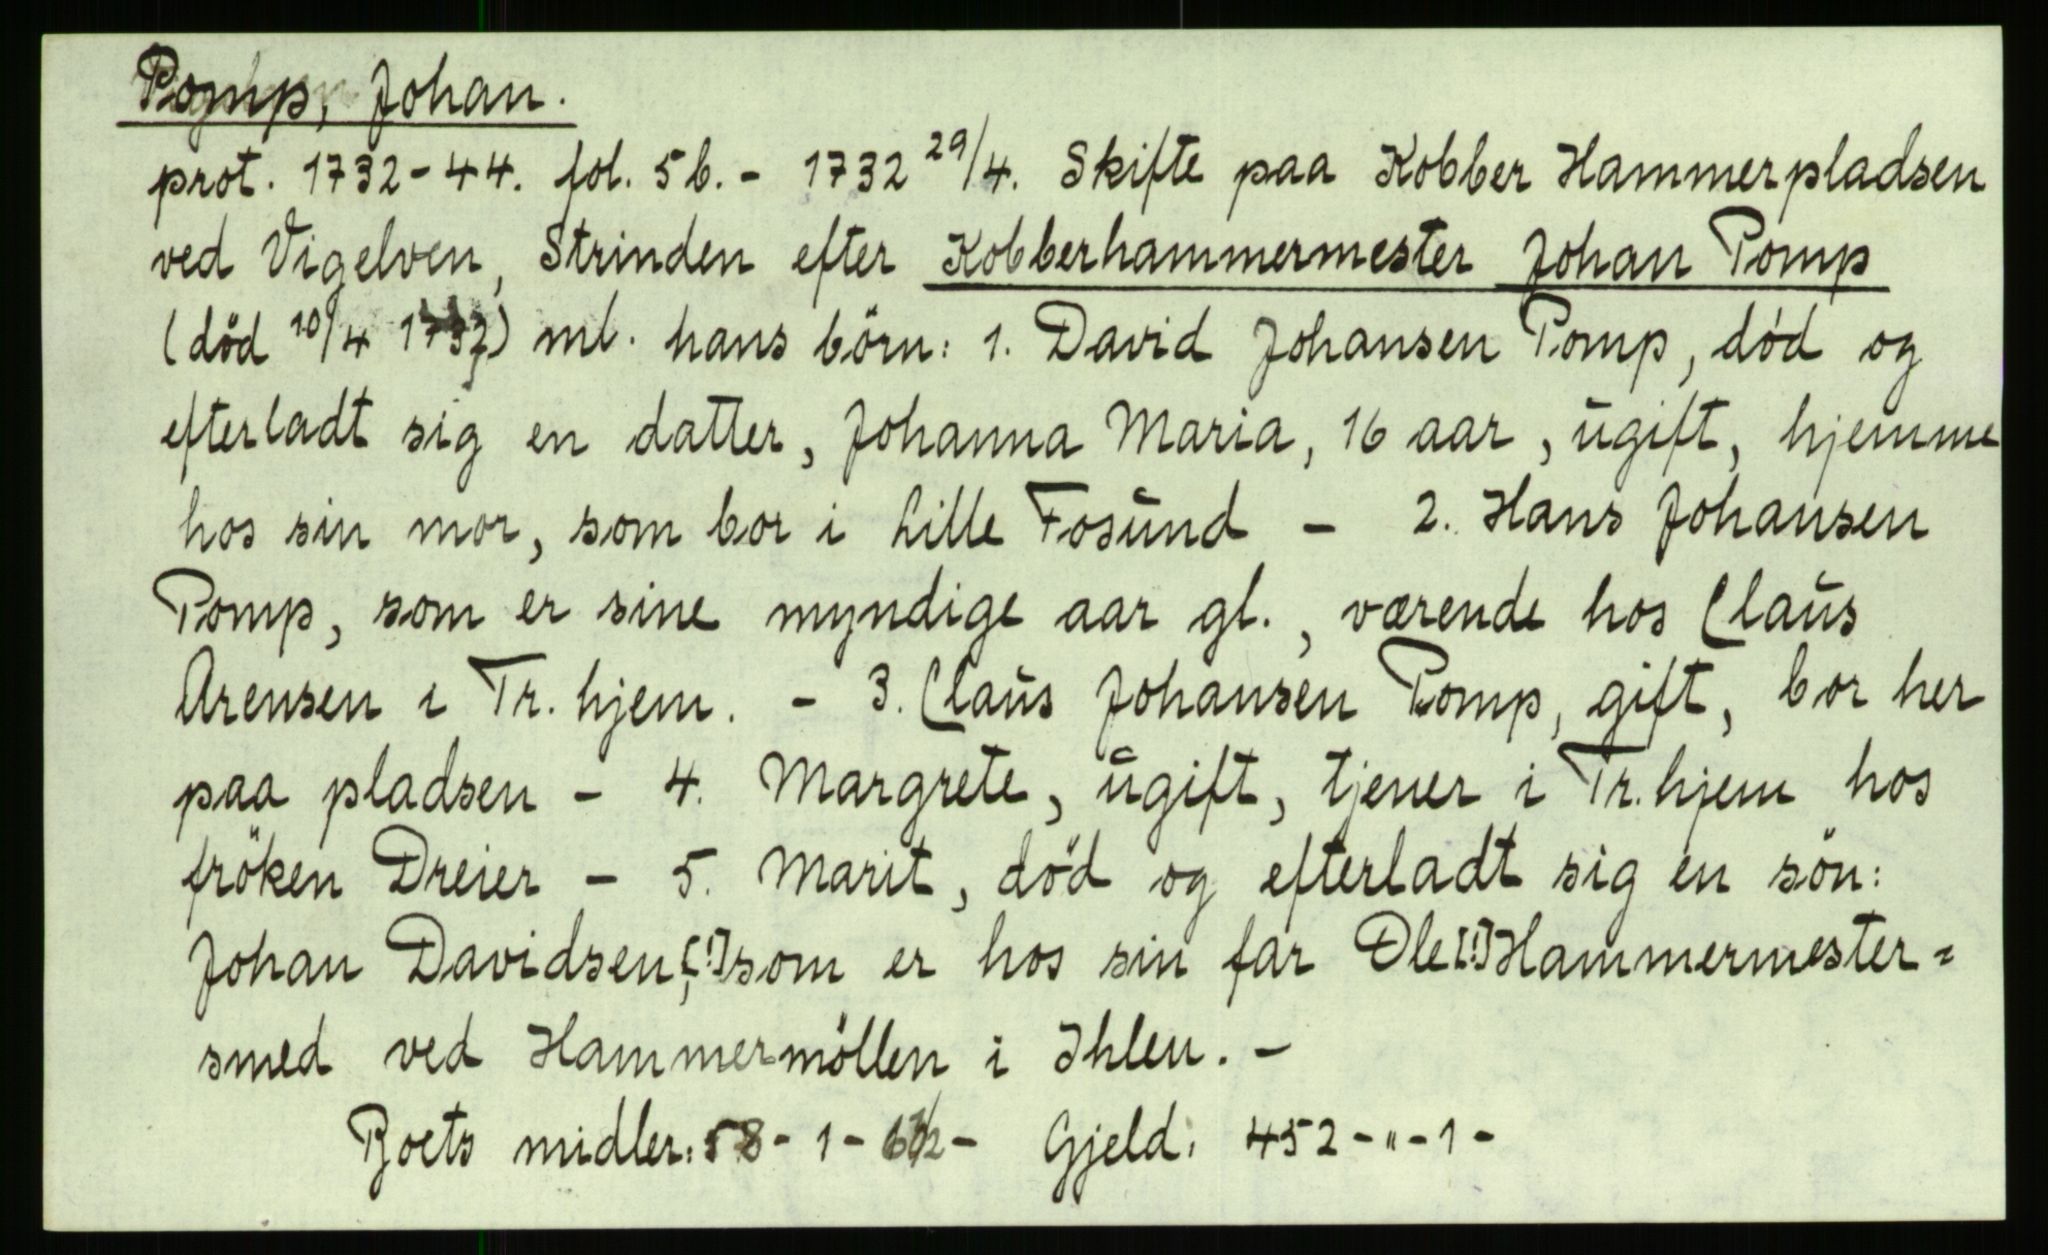 Pomp, Johan.
prot. 1732-44. fol. 5b. - 1732 29/4. Skifte paa Kobber Hammerpladsen
ved Vigelven, Strinden efter Kobberhammermester Johan Pomp
(död 10/4 1732) ml. hans börn: 1. David Johansen Pomp, död og
efterladt sig en datter, Johanna Maria, 16 aar, ugift, hjemme
hos sin mor, som bor i Lille Fosund - 2. Hans Johansen
Pomp, som er sine myndige aar gl., værende hos Claus
Arensen i Tr.hjem. - 3. Claus Johansen Pomp, gift, bor her
paa pladsen - 4. Margrete, ugift, tjener i Tr.hjem hos
fröken Dreier - 5. Marit, död og efterladt sig en sön:
Johan Davidsen,[!] som er hos sin far Ole[!] Hammermester=
smed ved Hammermöllen i Ihlen. -
Boets midler: 58 - 1 - Gjeld: 452 - " - 1 -